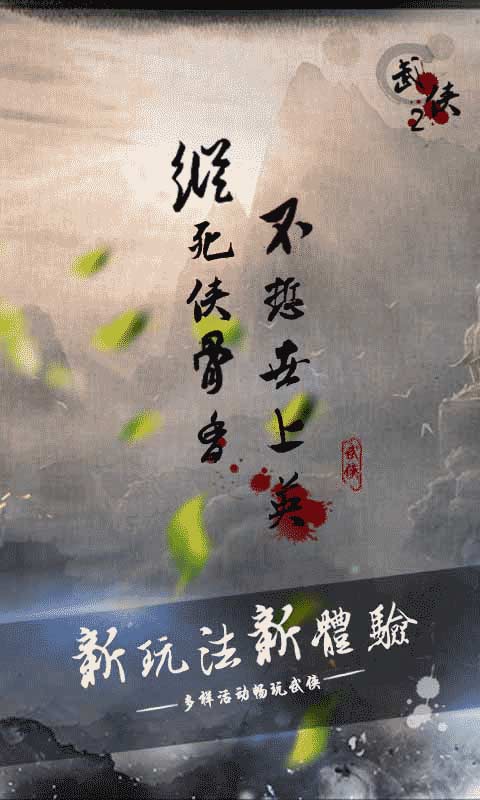 武侠2
縱死侠骨香
不惭世上英
武侠
新玩法新體驗
多样活动畅玩武侠